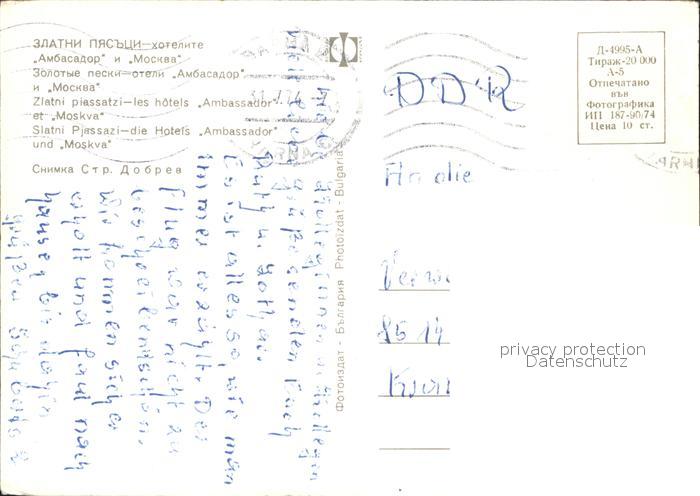 ЗЛАТНИ ПЯСЪЦИ—хотелите
„Амбасадор" и „Москва"
Золотые пески—отели „Амбасадор"
и „Москва"
Zlatni piassatzi—les hôtels „Ambassador"
et „Moskva"
Slatni Pjassazi—die Hotels „Ambassador"
und „Moskva"
Снимка Стр. Добрев
Фотоиздат - България Photoizdat - Bulgaria
Д-4995-А
Тираж-20 000
А-5
Отпечатано
във
Фотографика
ИП 187-90/74
Цена 10 ст.
DDR
An die
8514
privacy protection
Datenschutz
Grüße senden Euch
Ruth u.
Es ist alles so, wie man
immer erzählt. Der
Flug war nicht zu
beschreiben schön.
Wir kommen sicher
erholt und faul nach
Hause, bis dahin
grüßen